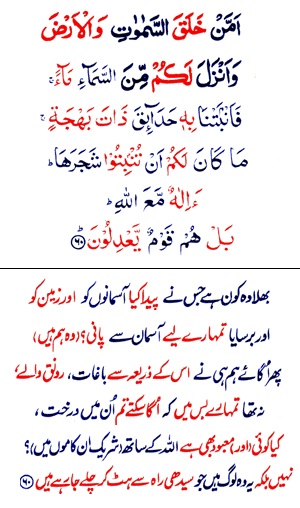 اَمَّنْ خَلَقَ السَّمٰوٰتِ وَالْاَرْضَ
وَاَنْزَلَ لَكُمْ مِّنَ السَّمَآءِ مَآءً ۚ
فَاَنْۢبَتْنَا بِهٖ حَدَآئِقَ ذَاتَ بَهْجَةٍ ۚ
مَا كَانَ لَكُمْ اَنْ تُنْۢبِتُوْا شَجَرَهَا ؕ
ءَاِلٰهٌ مَّعَ اللّٰهِ ؕ
بَلْ هُمْ قَوْمٌ يَّعْدِلُوْنَ ؕ ﴿۶۰﴾
بھلا وہ کون ہے جس نے پیدا کیا آسمانوں کو اور زمین کو
اور برسایا تمہارے لیے آسمان سے پانی؟ (وہ ہم ہیں)
پھر اُگائے ہم ہی نے اس کے ذریعہ سے باغات، رونق والے،
نہ تھا تمہارے بس میں کہ اُگا سکتے تم اُن میں درخت،
کیا کوئی (اور) معبود بھی ہے اللہ کے ساتھ (شریک ان کاموں میں)؟
نہیں بلکہ یہ وہ لوگ ہیں جو سیدھی راہ سے ہٹ کر چلے جا رہے ہیں ﴿۶۰﴾